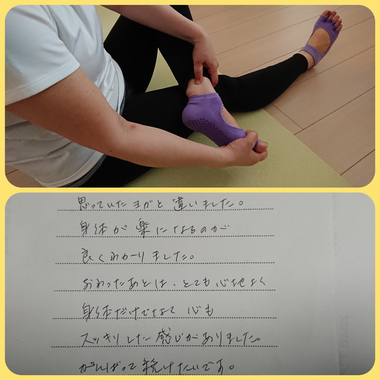 思っていたヨガと違いました。
身体が楽になるのが
良くわかりました。
おわったあとは、とても心地よく
身体だけでなく心も
スッキリした感じがありました。
がんばって続けたいです。